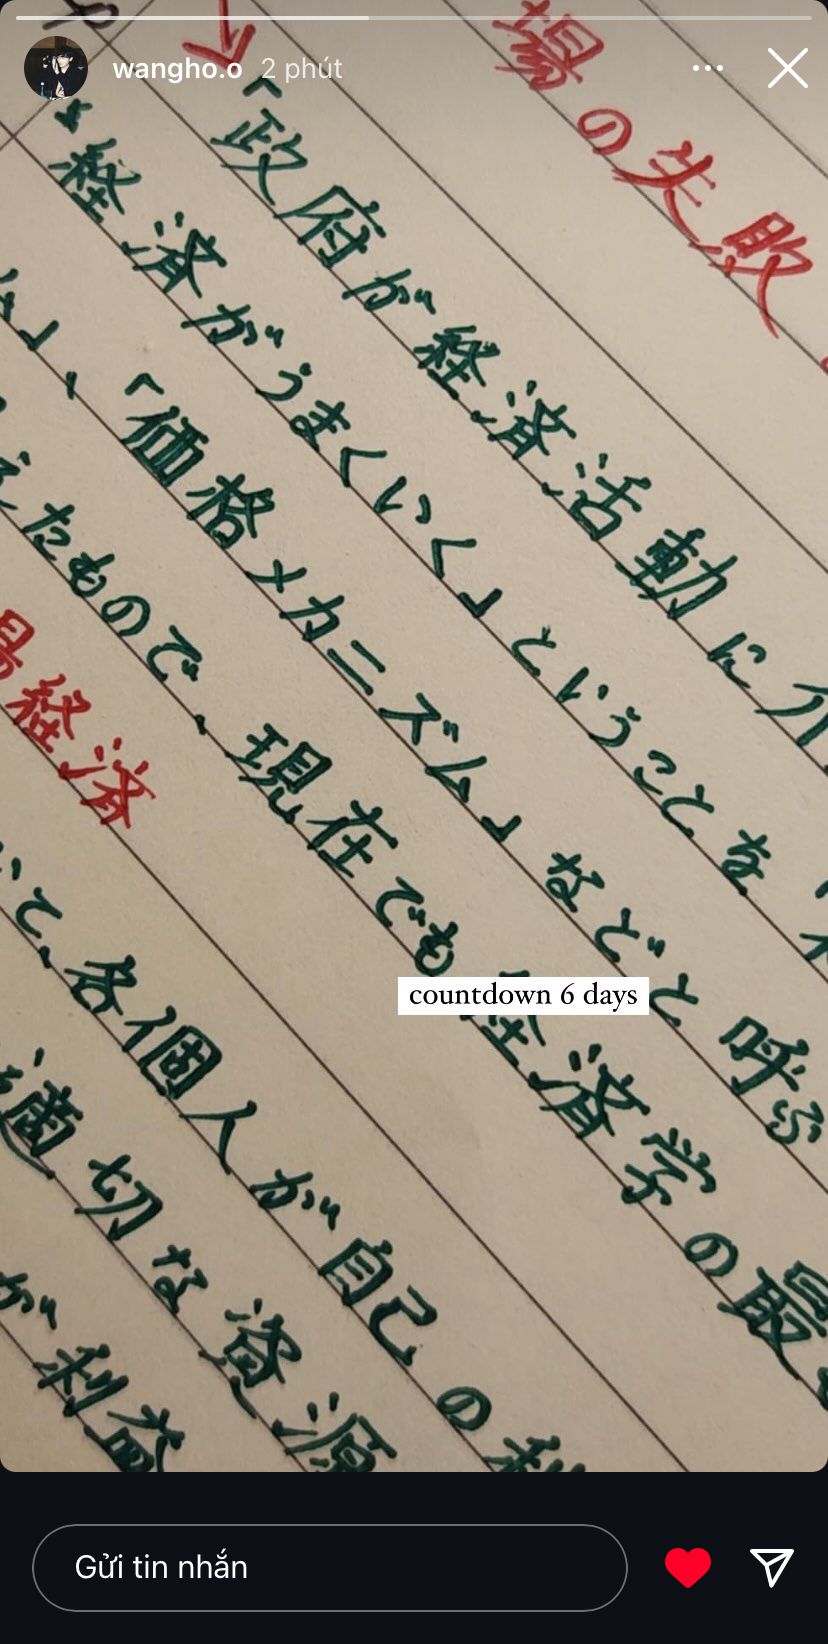 wangho.o 2 phút
場の失敗
「政府が経済活動に介
経済がうまくいく」ということを「
」、「価格メカニズム」などと呼ぶ
えたもので、現在でも経済学の最も
場経済
いて、各個人が自己の利
適切な資源
が利益
countdown 6 days
Gửi tin nhắn